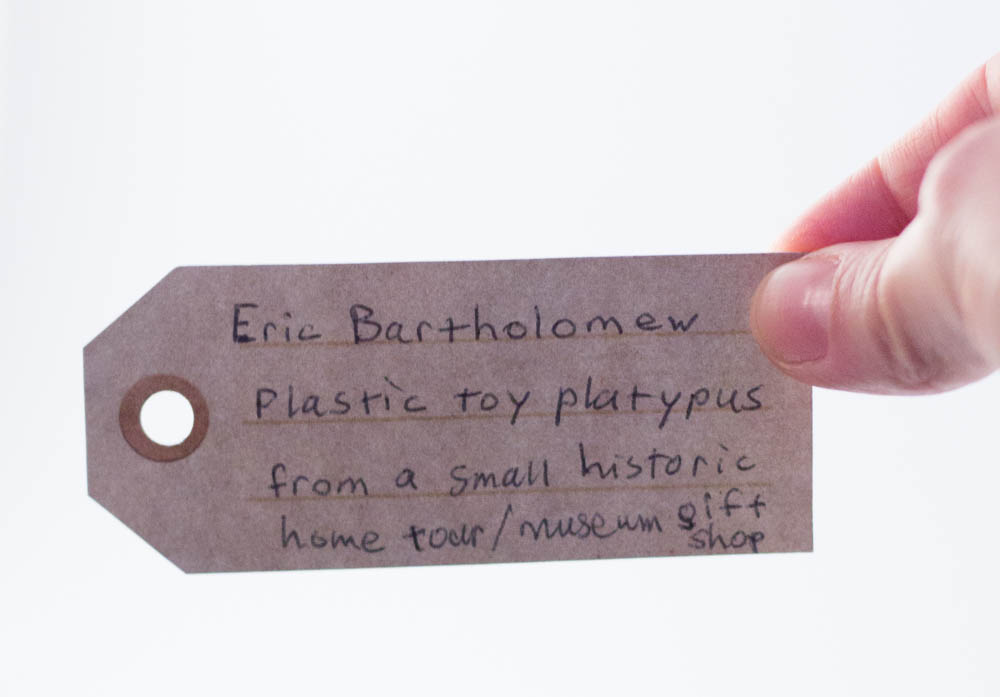 Eric Bartholomew
Plastic toy platypus
from a small historic
home tour/museum gift
shop